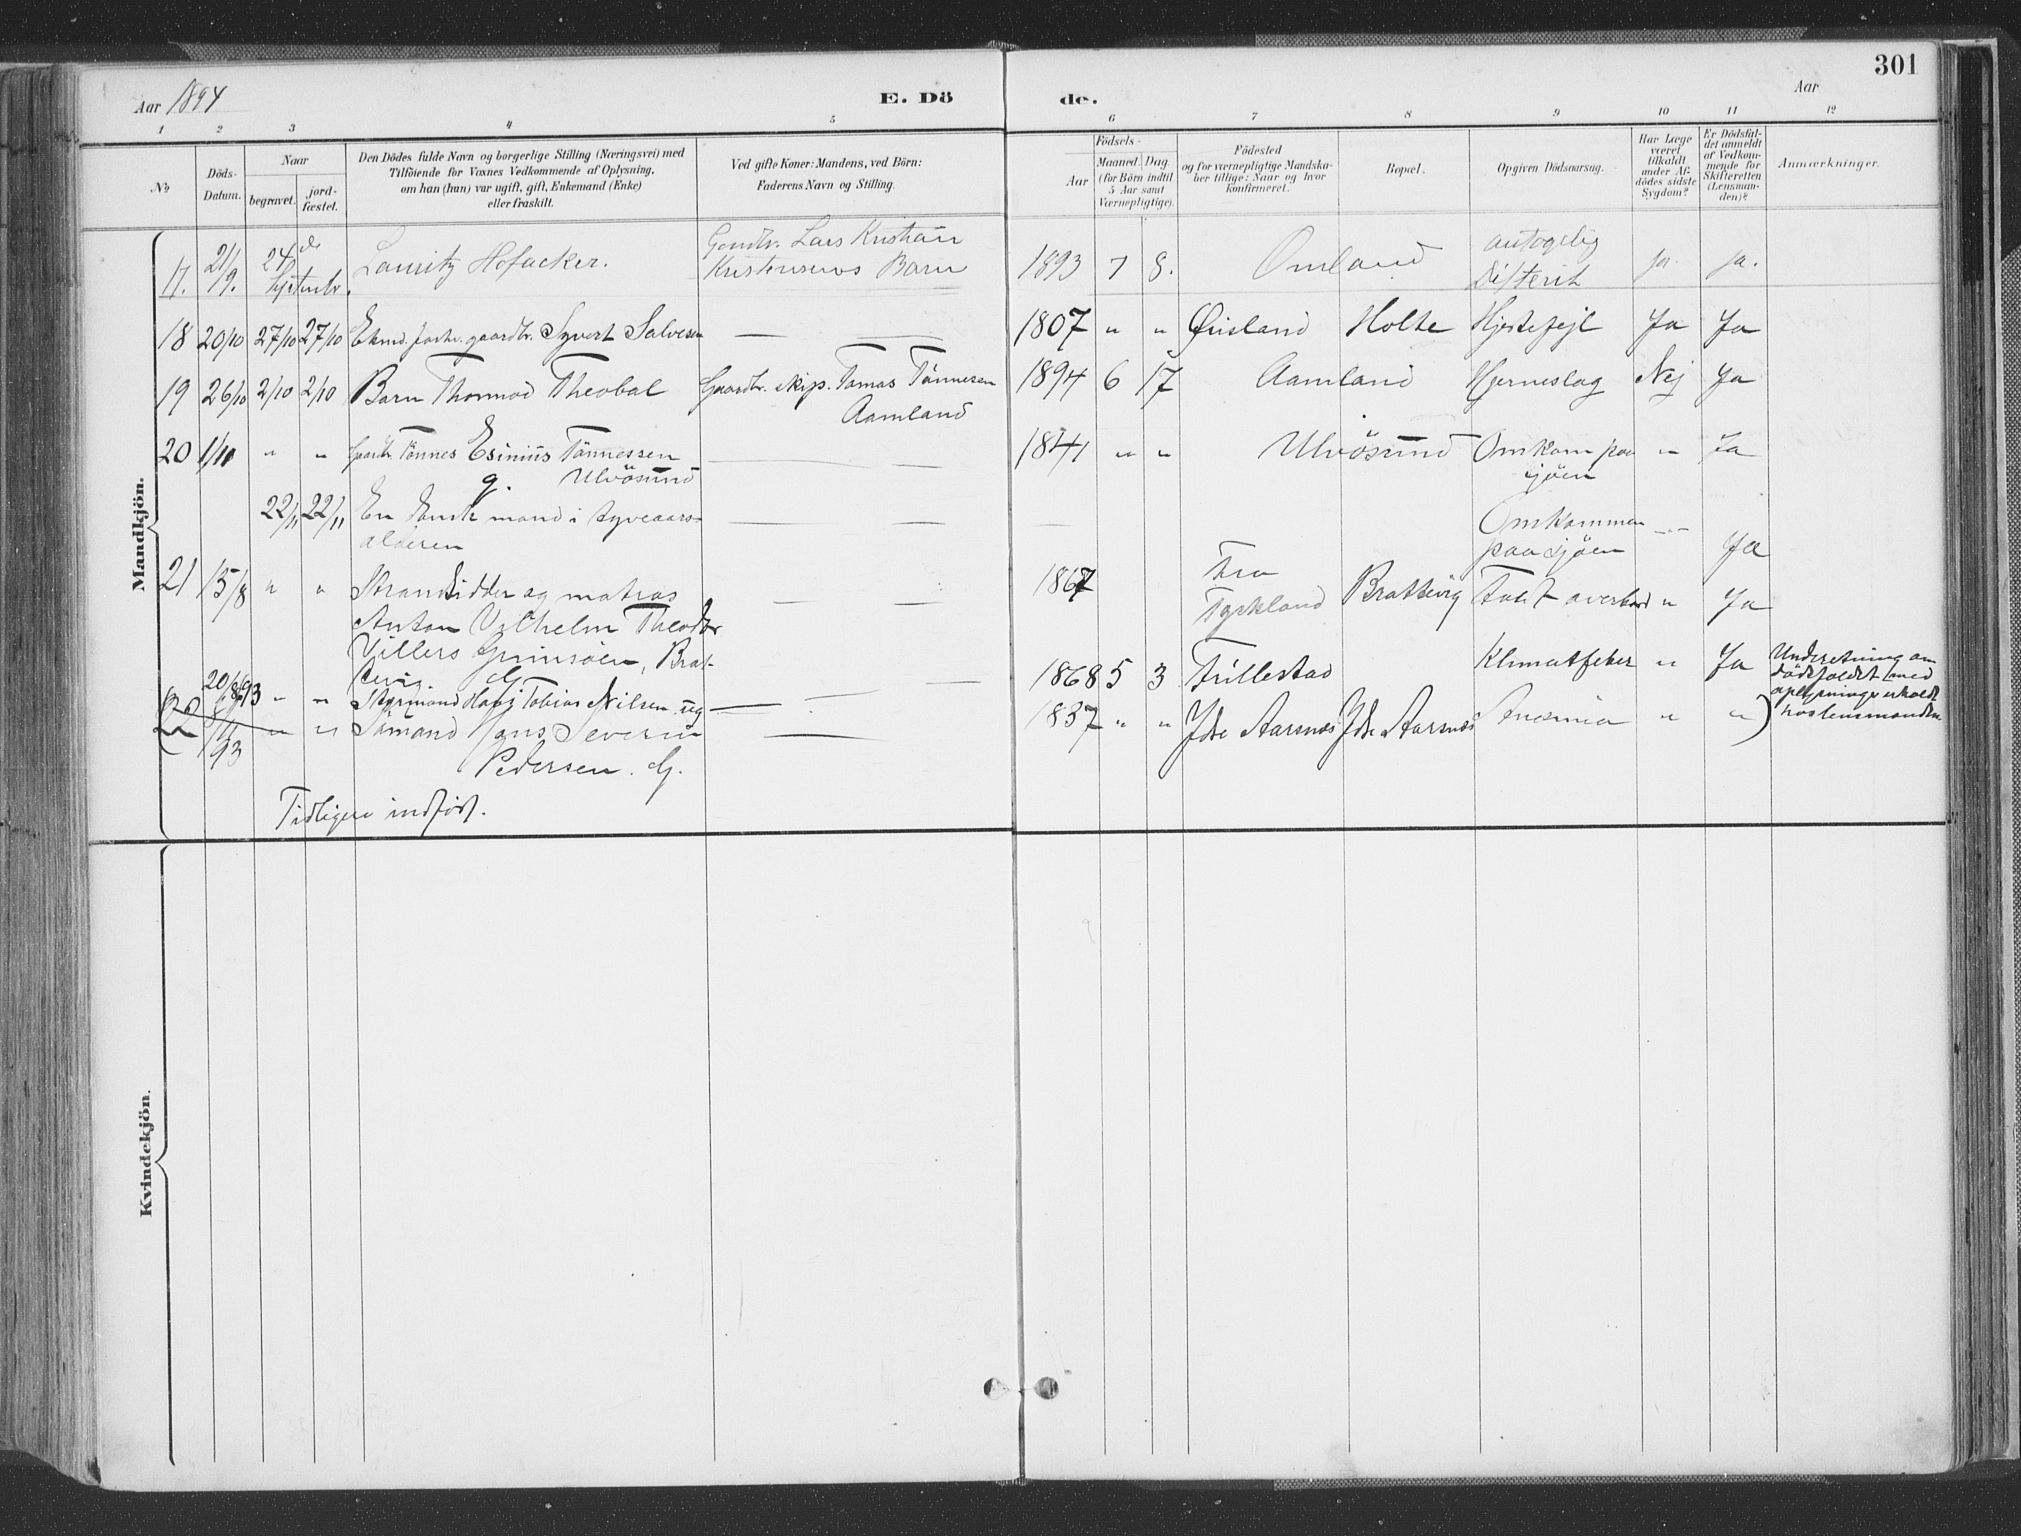 301
Aar 1894
E. Dö
de.
Aar
1 2 3 4 5 6 7 8 9 10 11 12
No
Döds-
Datum.
Naar
begravet.
jord-
fæstet.
Den Dödes fulde Navn og borgerlige Stilling (Næringsvei) med
Tilföiende for Voxnes Vedkommende af Oplysning,
om han (hun) var ugift, gift, Enkemand (Enke)
eller fraskilt.
Ved gifte Koner: Mandens, ved Börn:
Faderens Navn og Stilling.
Födsels-
Aar
Maaned. Dag.
(for Börn indtil
5 Aar samt
Værnepligtige).
Födested
og for værnepligtige Mandska-
ber tillige: Naar og hvor
konfirmeret.
Bopæl.
Opgiven Dödsaarsag.
Har Læge
været
tilkaldt
under Af-
dödes sidste
Sygdom?
Er Dödsfal-
det anmeldt
af Vedkom-
mende for
Skifteretten
(Lensman-
den)?
Anmærkninger.
Mandkjön.
17. 21/9. 24de Septembr. Lauritz Hofacker. Gaardbr. Lars Kristian
Kristensens Barn 1893 7 8. Omland
Difterit ja. ja.
18 20/10 27/10 27/10 Ekmd. forhv. gaardbr. Syvert Salvesen — — 1807 " " Øiisland Holte Hjertefejl Ja Ja
19 26/10 2/10 2/10 Barn Thormod Theobal Gaardbr. skip. Tomas Tönnesen
Aamland 1894 6 17 Aamland Hjerneslag Nej Ja
20 1/11 " " Gaardbr. Tönnes Esinius Tönnessen
g. Ulvösund — — 1841 " " Ulvösund Omkom paa
sjöen " Ja
22/11 22/11 En dansk mand i tyveaars-
alderen — — — Omkommen
paa sjöen " Ja
21 15/8 " " Strandsidder og matros
Anton Vilhelm Theodor
Villers Grimsöen, Brat-
tevig G. — — 1867 Fra
Tyrkland Brattevig Faldt overbord " Ja
20/8 93 " " Styrmand Hans Tobias Nilsen ug — — 1868 5 3 Trillestad Klimatfeber " Ja Underretning om
dödsfaldet med
oplysninger erholdt
hos lensmanden
22 8/1 93 " " Sömand Hans Severin
Pedersen. G. — — 1837 " " Jdse Aarsnes Jdse Aarsnes Anæmia " "
Tidligere indfört.
Kvindekjön.